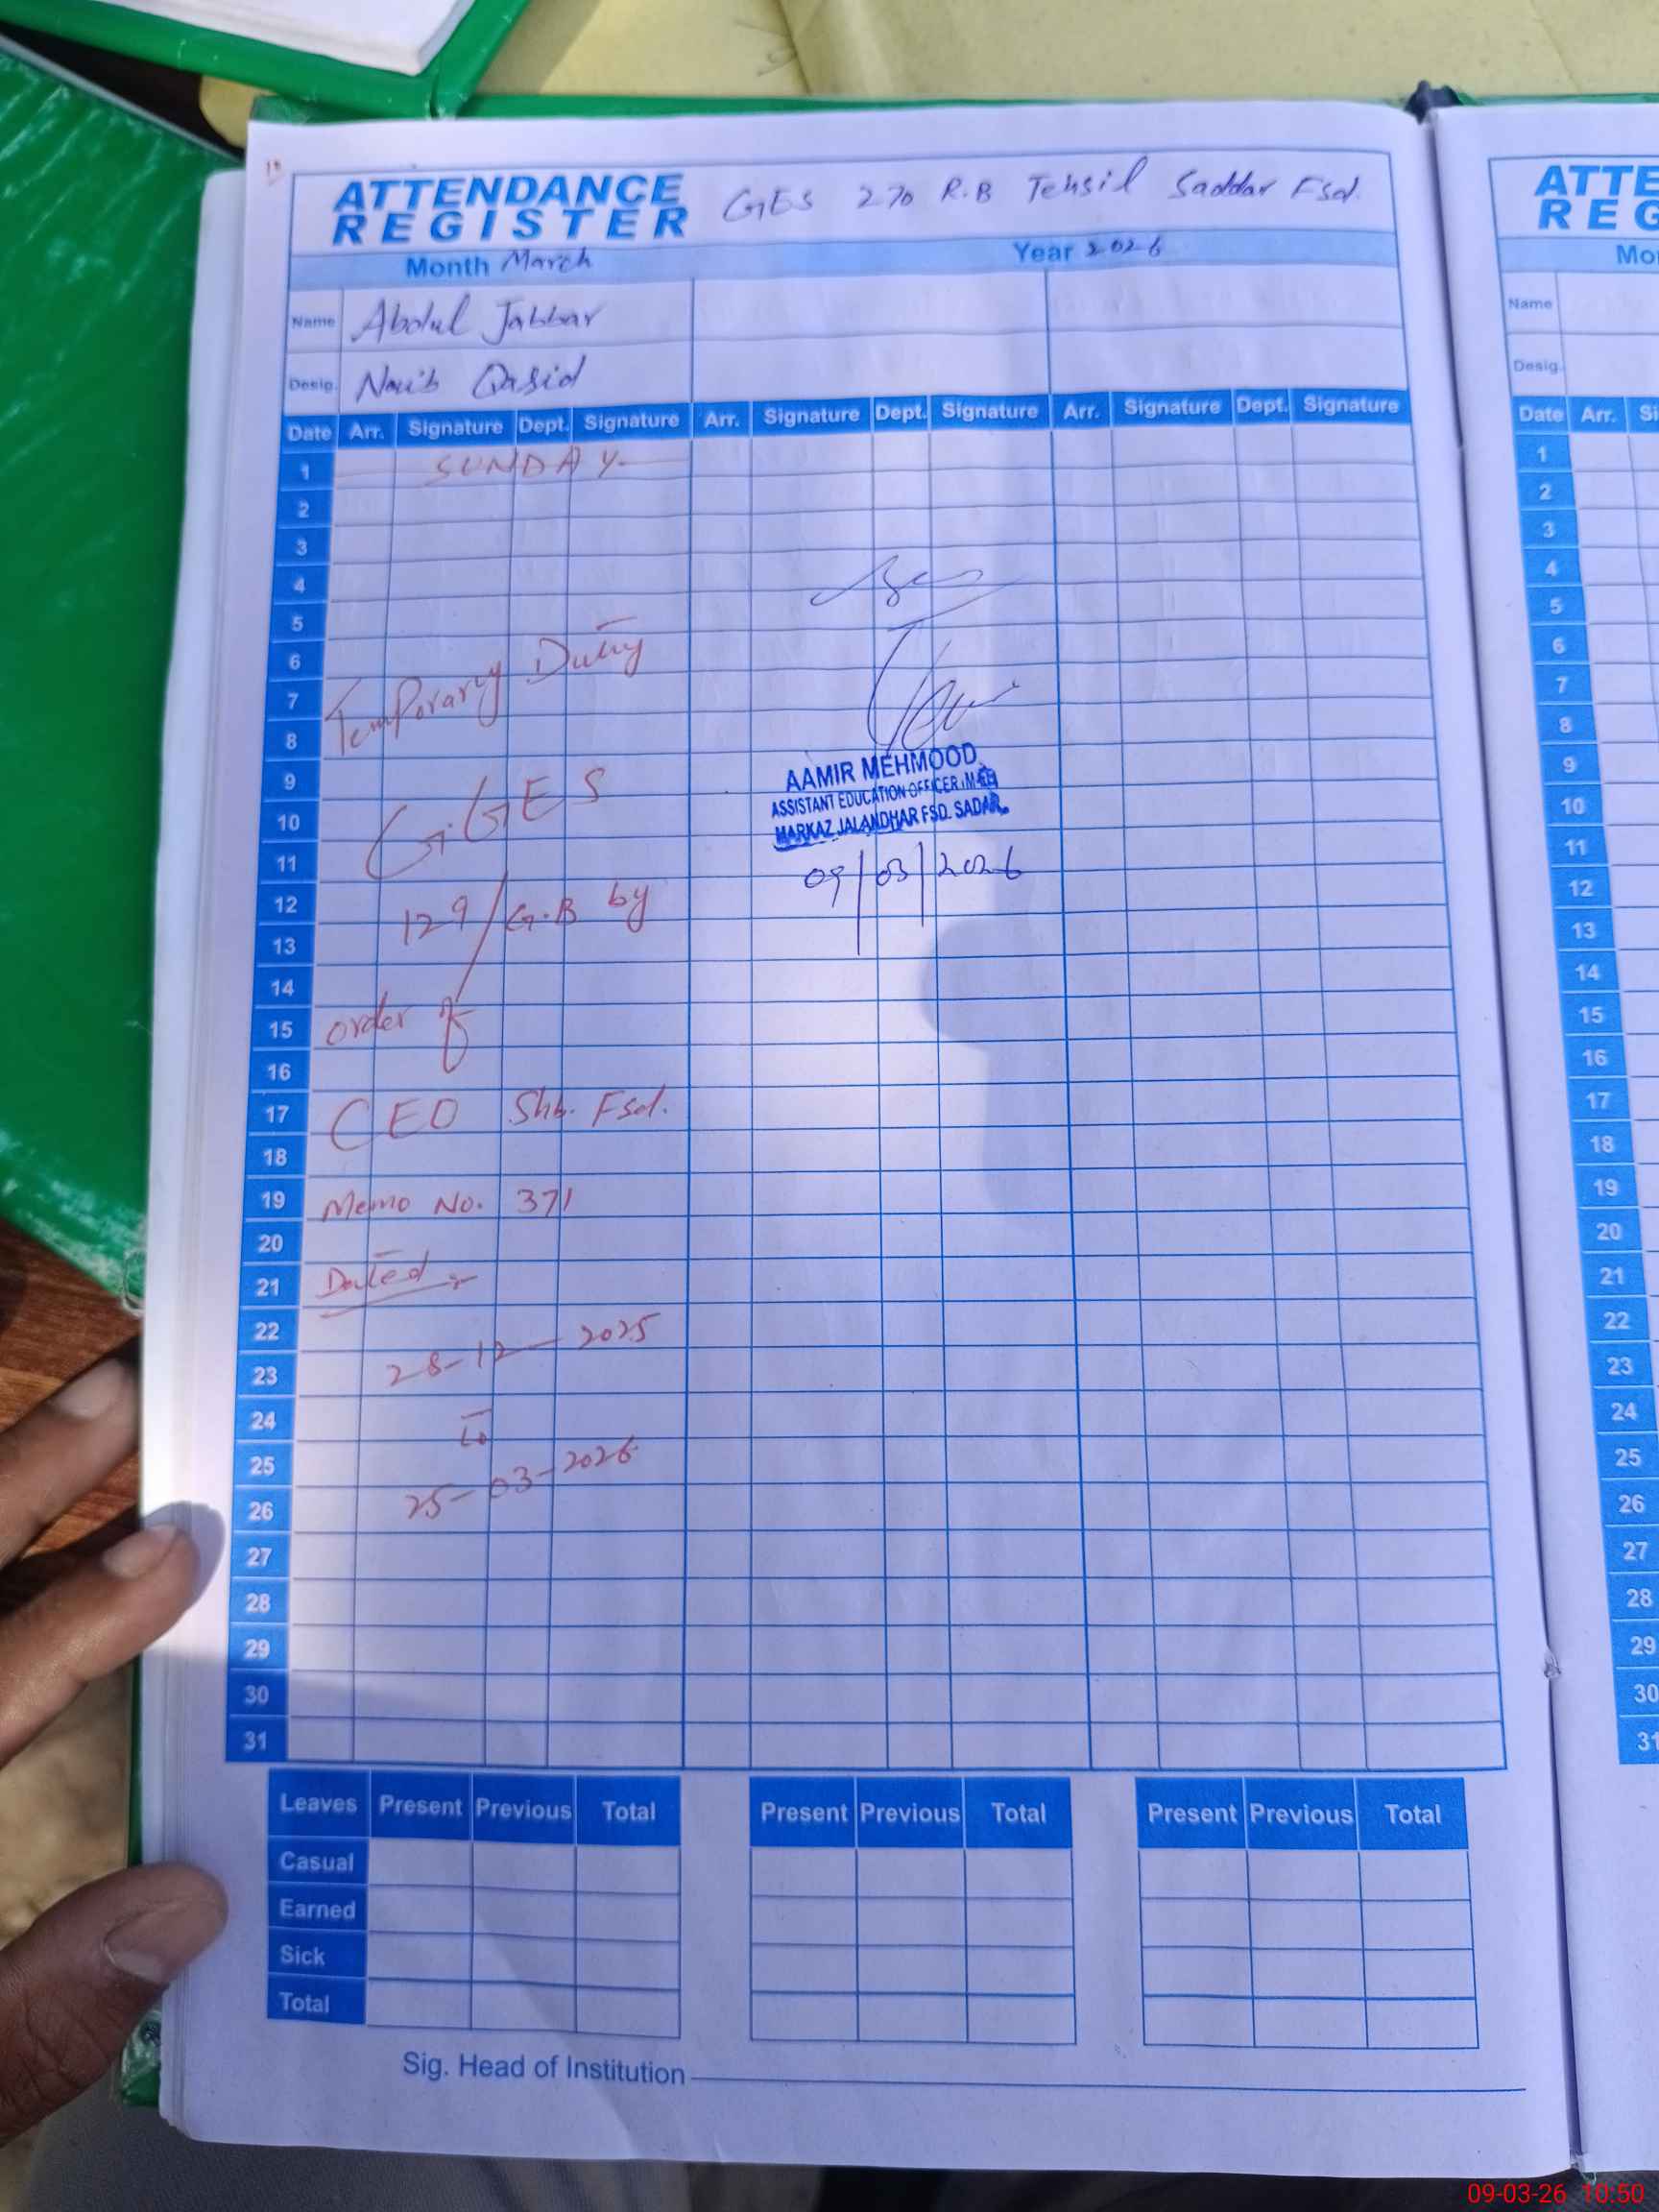 ATTENDANCE REGISTER GES 270 R.B Tehsil Saddar Fsd.
Month March Year 2026
Name Abdul Jabbar
Desig. Naib Qasid
Date Arr. Signature Dept. Signature Arr. Signature Dept. Signature Arr. Signature Dept. Signature
1 SUNDAY
2
3
4
5
6
7
8
Temporary Duty
9
10
G.GES
11
12
129/G.B by
13
14
15 order of
16
17 CEO Fsd.
18
19 Memo No. 371
20
21 Dated:-
22
23
28-12-2025
24
to
25
26
25-03-2026
27
28
29
30
31
AAMIR MEHMOOD
ASSISTANT EDUCATION OFFICER
MARKAZ JALANDHAR FSD. SADAR
09/03/2026
Leaves Present Previous Total Present Previous Total Present Previous Total
Casual
Earned
Sick
Total
Sig. Head of Institution
ATTE
REG
Mo
Name
Desig.
Date Arr. Si
1
2
3
4
5
6
7
8
9
10
11
12
13
14
15
16
17
18
19
20
21
22
23
24
25
26
27
28
29
30
31
09-03-26 10:50